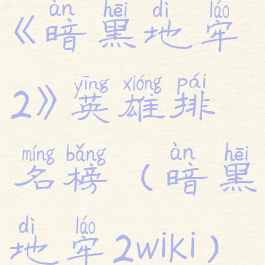 àn hēi dì láo
《暗黑地牢
yīng xióng pái
2》英雄排
míng bǎng àn hēi
名榜（暗黑
dì láo
地牢2wiki）